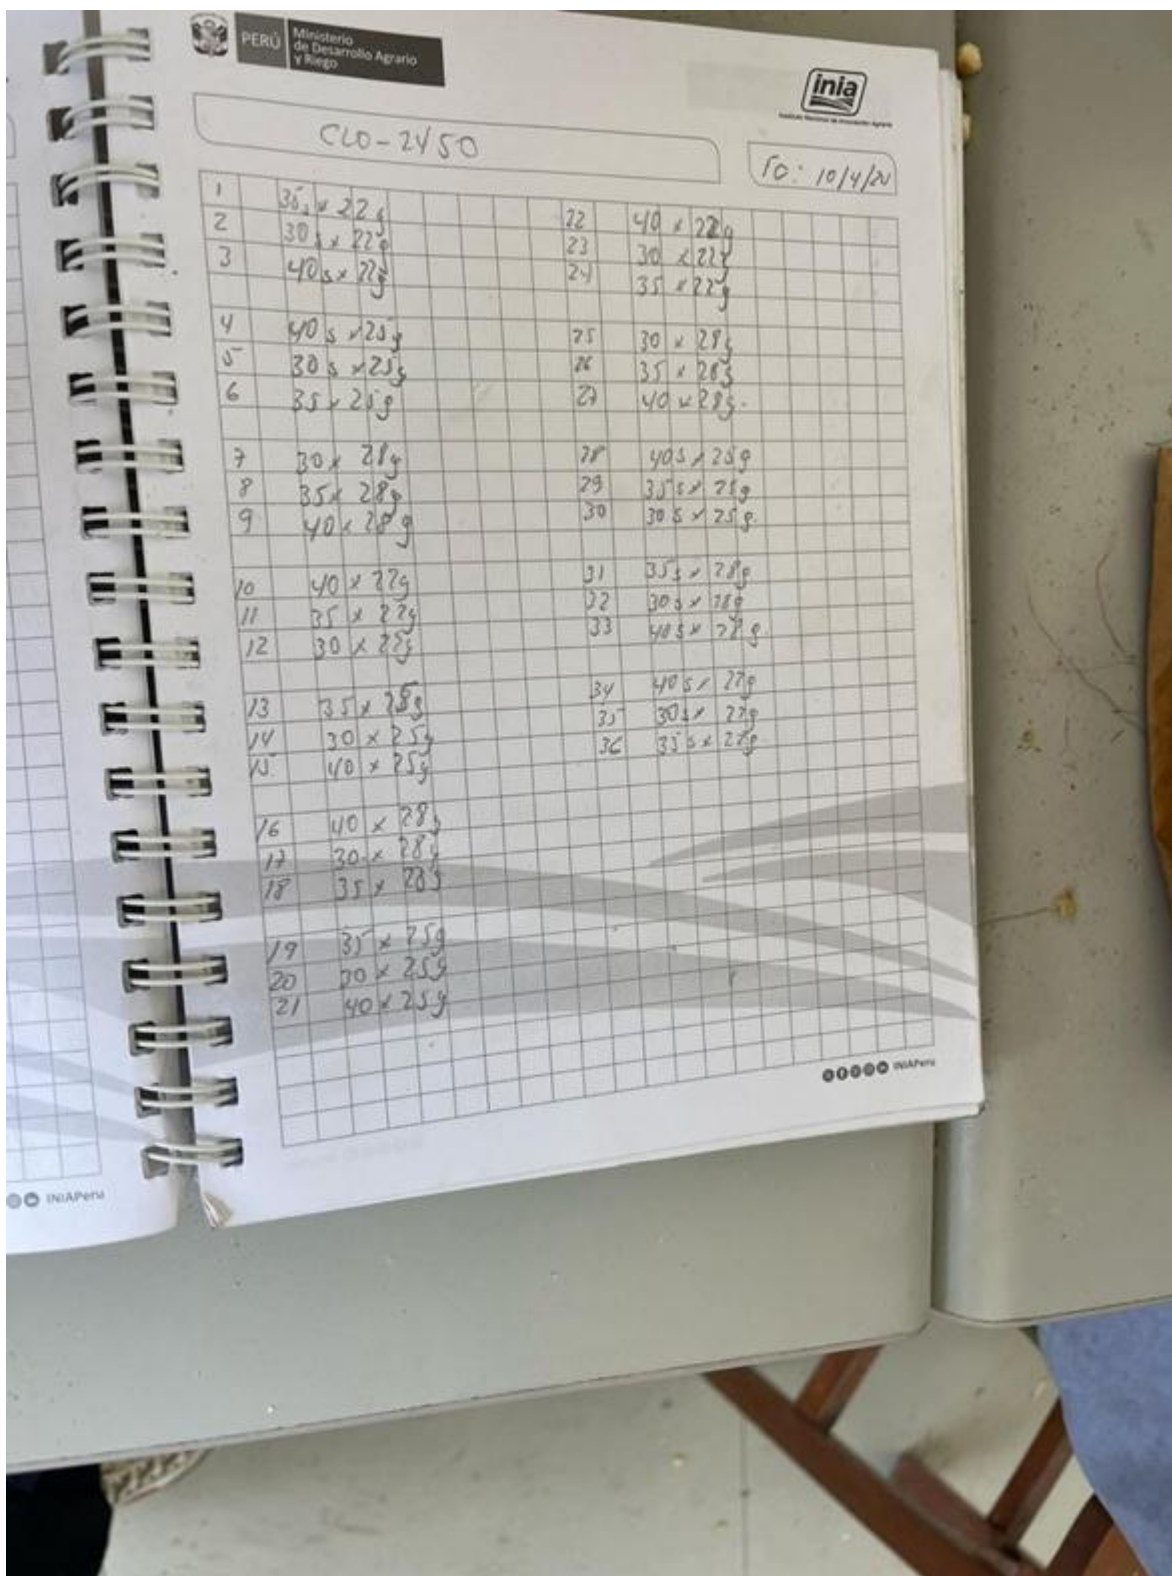 PERÚ
Ministerio
de Desarrollo Agrario
y Riego
inia
CLO-2450
1 35s x 22g
2 30s x 22g
3 40s x 22g
4 40s x 25g
5 30s x 25g
6 35 x 25g
7 30 x 28g
8 35 x 28g
9 40 x 28g
10 40 x 22g
11 35 x 22g
12 30 x 22g
13 35 x 25g
14 30 x 25g
15 40 x 25g
16 40 x 28g
17 30 x 28g
18 35 x 28g
19 35 x 25g
20 30 x 25g
21 40 x 25g
22 40 x 22g
23 30 x 22g
24 35 x 22g
25 30 x 28g
26 35 x 28g
27 40 x 28g.
28 40s x 25g
29 35s x 25g
30 30s x 25g.
31 35s x 28g
32 30s x 28g
33 40s x 28g.
34 40s x 22g
35 30s x 22g
36 35s x 22g
INIAPeru
INIAPeru